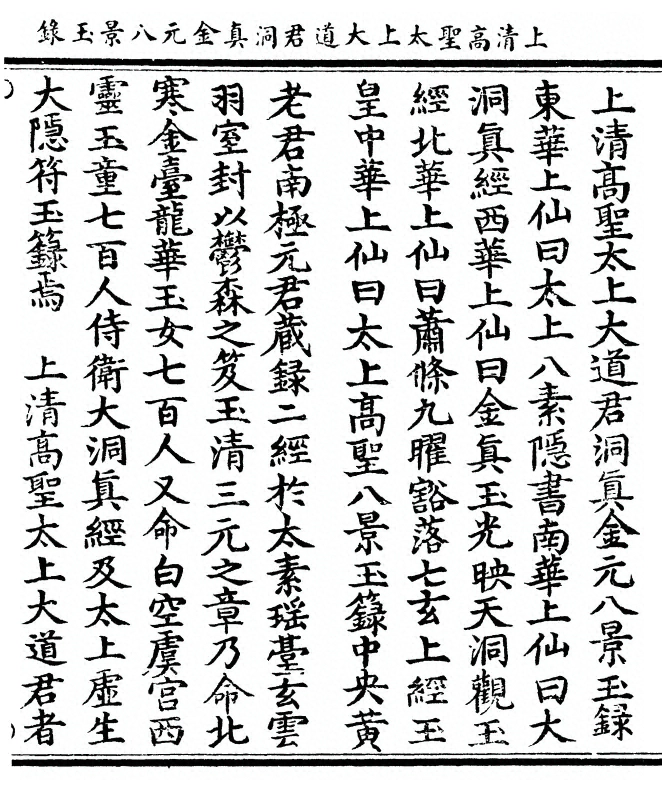 上清高聖太上大道君洞真金元八景玉錄
上清髙聖太上大道君洞真金元八景玉録
東華上仙曰太上八素隱書南華上仙曰大
洞真經西華上仙曰金真玉光映天洞觀玉
經北華上仙曰蕭條九曜豁落七玄上經玉
皇中華上仙曰太上髙聖八景玉籙中央黄
老君南極元君蔵録二經於太素瑶臺玄雲
羽室封以欝森之笈玉清三元之章乃命北
寒金臺龍華玉女七百人又命白空虞宫西
靈玉童七百人侍衛大洞真經及太上虛生
大隱符玉籙焉　上清髙聖太上大道君者